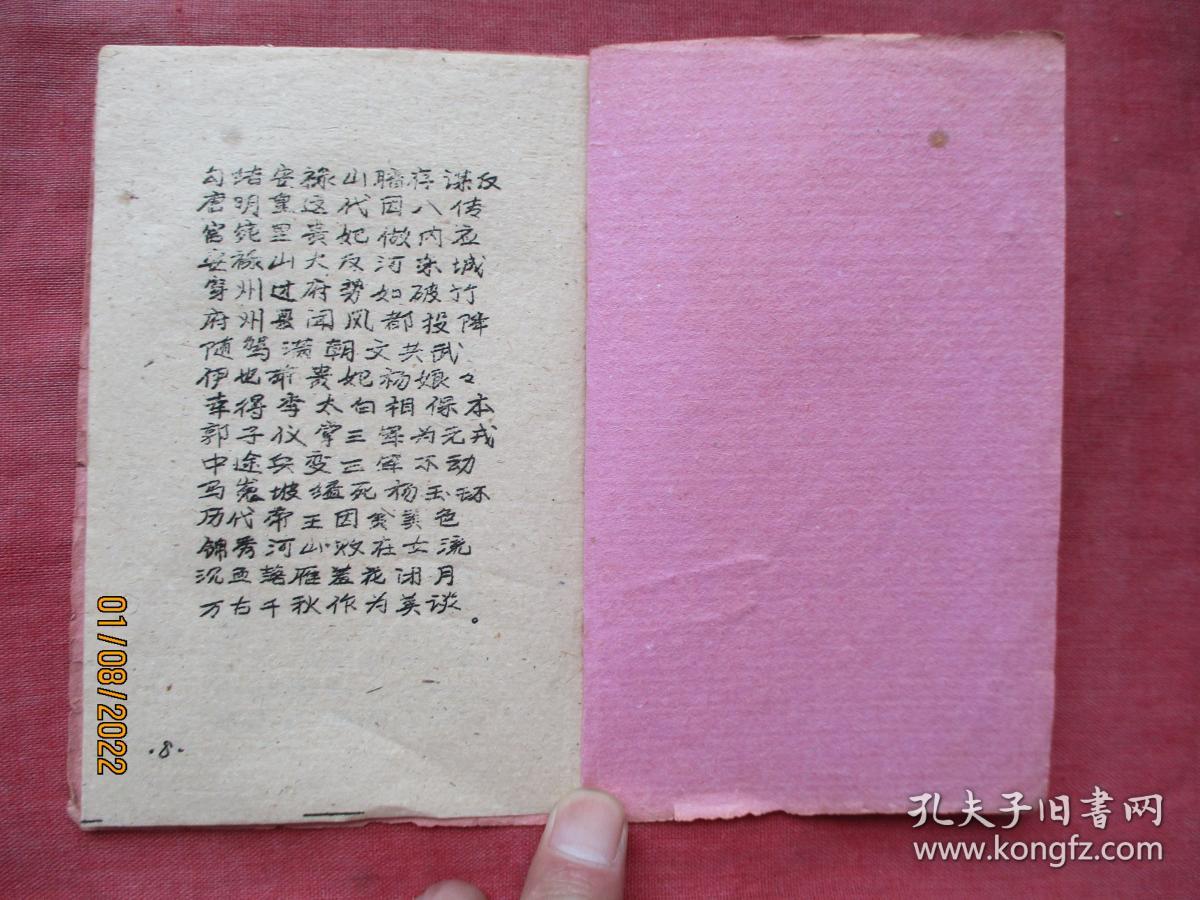 勾结安禄山暗存谋反
唐明皇这代因八传
宫纯里贵妃做内衣
安禄山大反河东城
穿州过府势如破竹
府州县闻风都投降
随驾满朝文共武
伊也带贵妃杨娘々
幸得李太白相保本
郭子仪掌三军为元戎
中途兵变三军不动
马嵬坡缢死杨玉环
历代帝王因贪美色
锦秀河山败在女流
沉鱼落雁羞花闭月
万古千秋作为美谈。
·8·
01/08/2022
孔夫子旧書网
www.kongfz.com